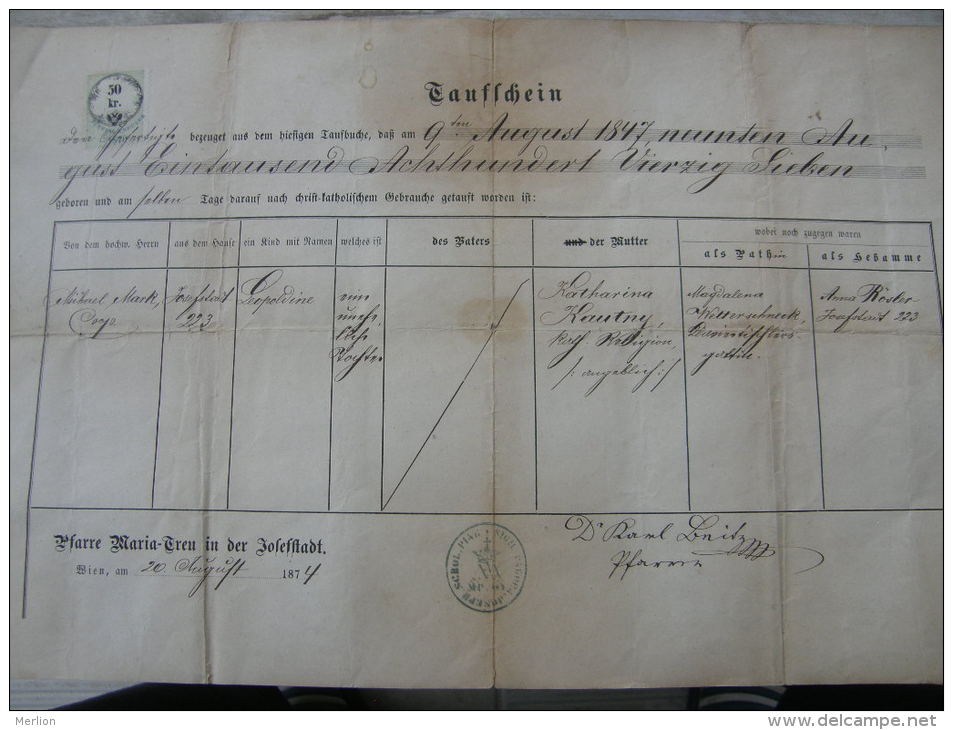 50
kr.
Taufschein
bezeuget aus dem hiesigen Taufbuche, daß am 9ten August 1847, neunten Au,
gust Eintausend Achthundert Vierzig Sieben
geboren und am selben Tage darauf nach christ-katholischem Gebrauche getauft worden ist:
Von dem hochw. Herrn
aus dem Hause
ein Kind mit Namen
welches ist
des Vaters
und der Mutter
wobei noch zugegen waren
als Pathin
als Hebamme
Michael Mark,
Coop.
Josefstadt
223
Leopoldine
eine
unehe,
liche
Tochter
Katharina
Kautny,
kath Religion,
/: angeblich :/
Magdalena
gattin.
Anna Rösler
Josefstadt 223
Pfarre Maria-Treu in der Josefstadt.
Wien, am 20. August 1874
Dr Karl
Pfarrer
Merlion
www.delcampe.net